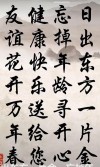 日出东方一片金
忘掉年龄寻开心
健康快乐送给您
友谊花开万年春